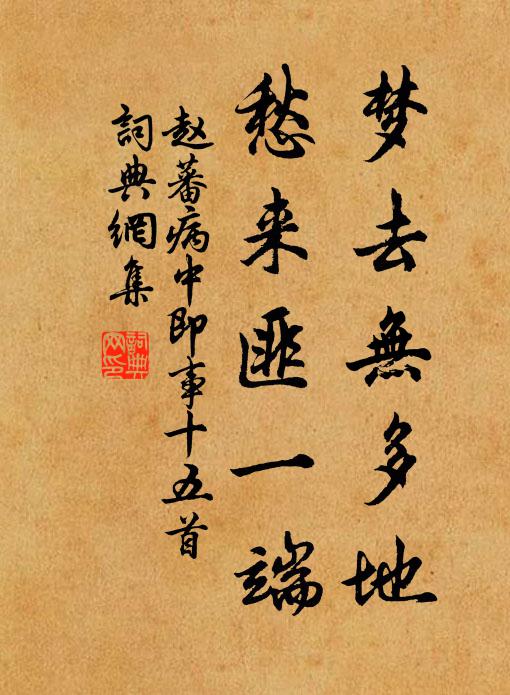 梦去無多地
愁来匪一端
赵蕃病中即事十五首
詞典網集
詞典網印